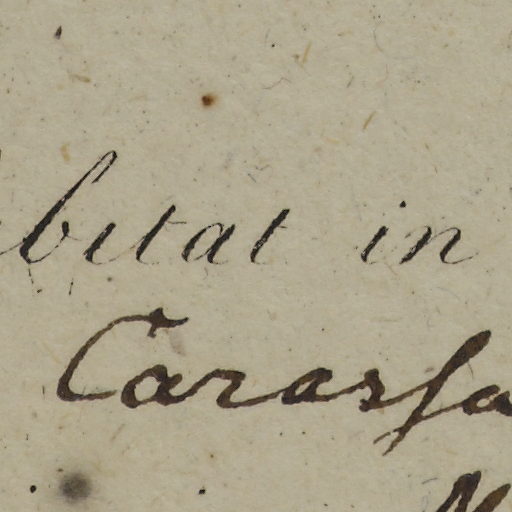 bitat in
Carassa